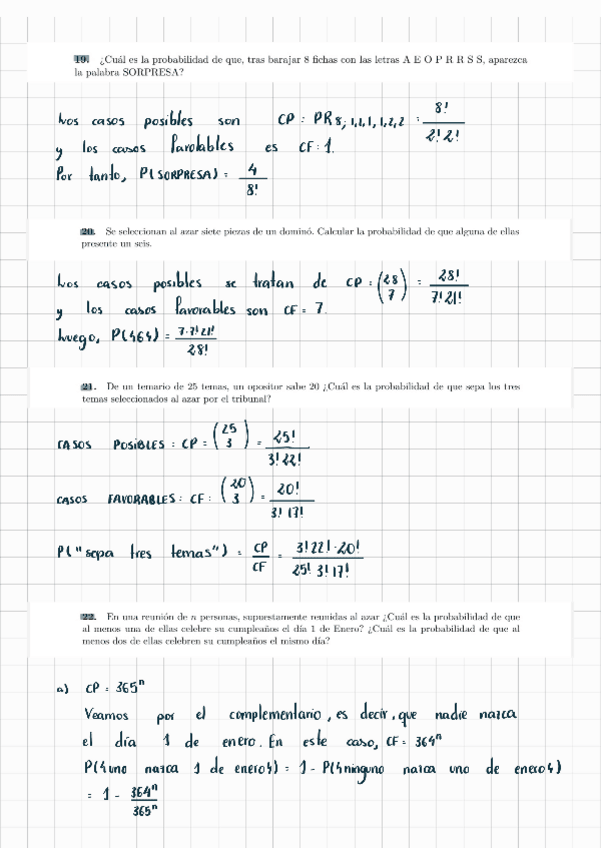 19. ¿Cuál es la probabilidad de que, tras barajar 8 fichas con las letras A E O P R R S S, aparezca
la palabra SORPRESA?
Los casos posibles son CP : PR 8; 1,1,1,1,2,2 = 8! / 2! 2!
y los casos favorables es CF : 1.
Por tanto, P(SORPRESA) = 4 / 8!
20. Se seleccionan al azar siete piezas de un dominó. Calcular la probabilidad de que alguna de ellas
presente un seis.
Los casos posibles se tratan de CP = (28 7) = 28! / 7! 21!
y los casos favorables son CF = 7.
Luego, P(«6») = 7·7! 21! / 28!
21. De un temario de 25 temas, un opositor sabe 20 ¿Cuál es la probabilidad de que sepa los tres
temas seleccionados al azar por el tribunal?
CASOS POSIBLES : CP = (25 3) = 25! / 3! 22!
CASOS FAVORABLES : CF = (20 3) = 20! / 3! 17!
P("sepa tres temas") = CP / CF = 3! 22! · 20! / 25! 3! 17!
22. En una reunión de n personas, supuestamente reunidas al azar ¿Cuál es la probabilidad de que
al menos una de ellas celebre su cumpleaños el día 1 de Enero? ¿Cuál es la probabilidad de que al
menos dos de ellas celebren su cumpleaños el mismo día?
a) CP = 365ⁿ
Veamos por el complementario, es decir, que nadie nazca
el día 1 de enero. En este caso, CF = 364ⁿ
P(«uno nazca 1 de enero») = 1 - P(«ninguno nazca uno de enero»)
= 1 - 364ⁿ / 365ⁿ